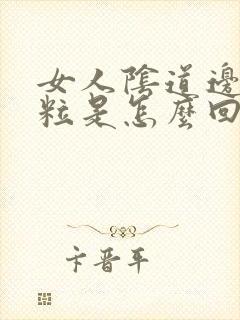 女人陰道邊
粒是怎麼回
卞晋平